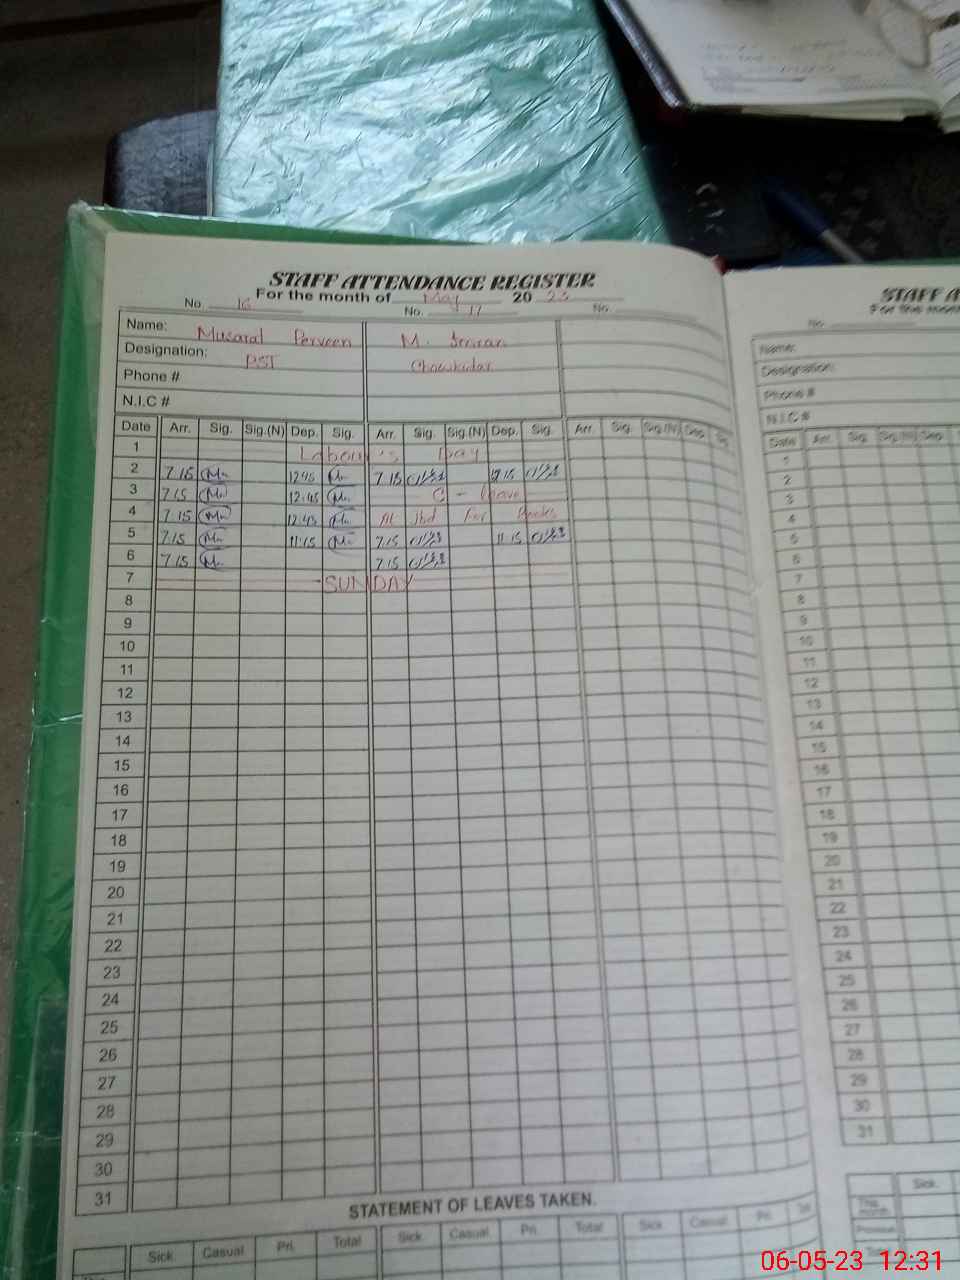 STAFF ATTENDANCE REGISTER
For the month of May 2023
No. 16 No. 17 No.
Name: Musarat Perveen M. Imran
Designation: PST Chowkidar
Phone #
N.I.C #
Date Arr. Sig. Sig.(N) Dep. Sig. Arr. Sig. Sig.(N) Dep. Sig. Arr. Sig. Sig.(N) Dep. Sig.
1 Labour's Day
2 7.15 12:45 7.15
3 7.15 12:45 C - leave
4 7.15 12:45 At for
5 7.15 11:15 7.15 11.15
6 7.15 7.15
7 SUNDAY
8
9
10
11
12
13
14
15
16
17
18
19
20
21
22
23
24
25
26
27
28
29
30
31
STATEMENT OF LEAVES TAKEN.
Sick Casual Pri. Total Sick Casual Pri. Total Sick Casual Pri.
STAFF A
For the month
No.
Name:
Designation:
Phone #
N.I.C #
Date Arr. Sig. Sig.(N) Dep.
1
2
3
4
5
6
7
8
9
10
11
12
13
14
15
16
17
18
19
20
21
22
23
24
25
26
27
28
29
30
31
Sick
This month
06-05-23 12:31